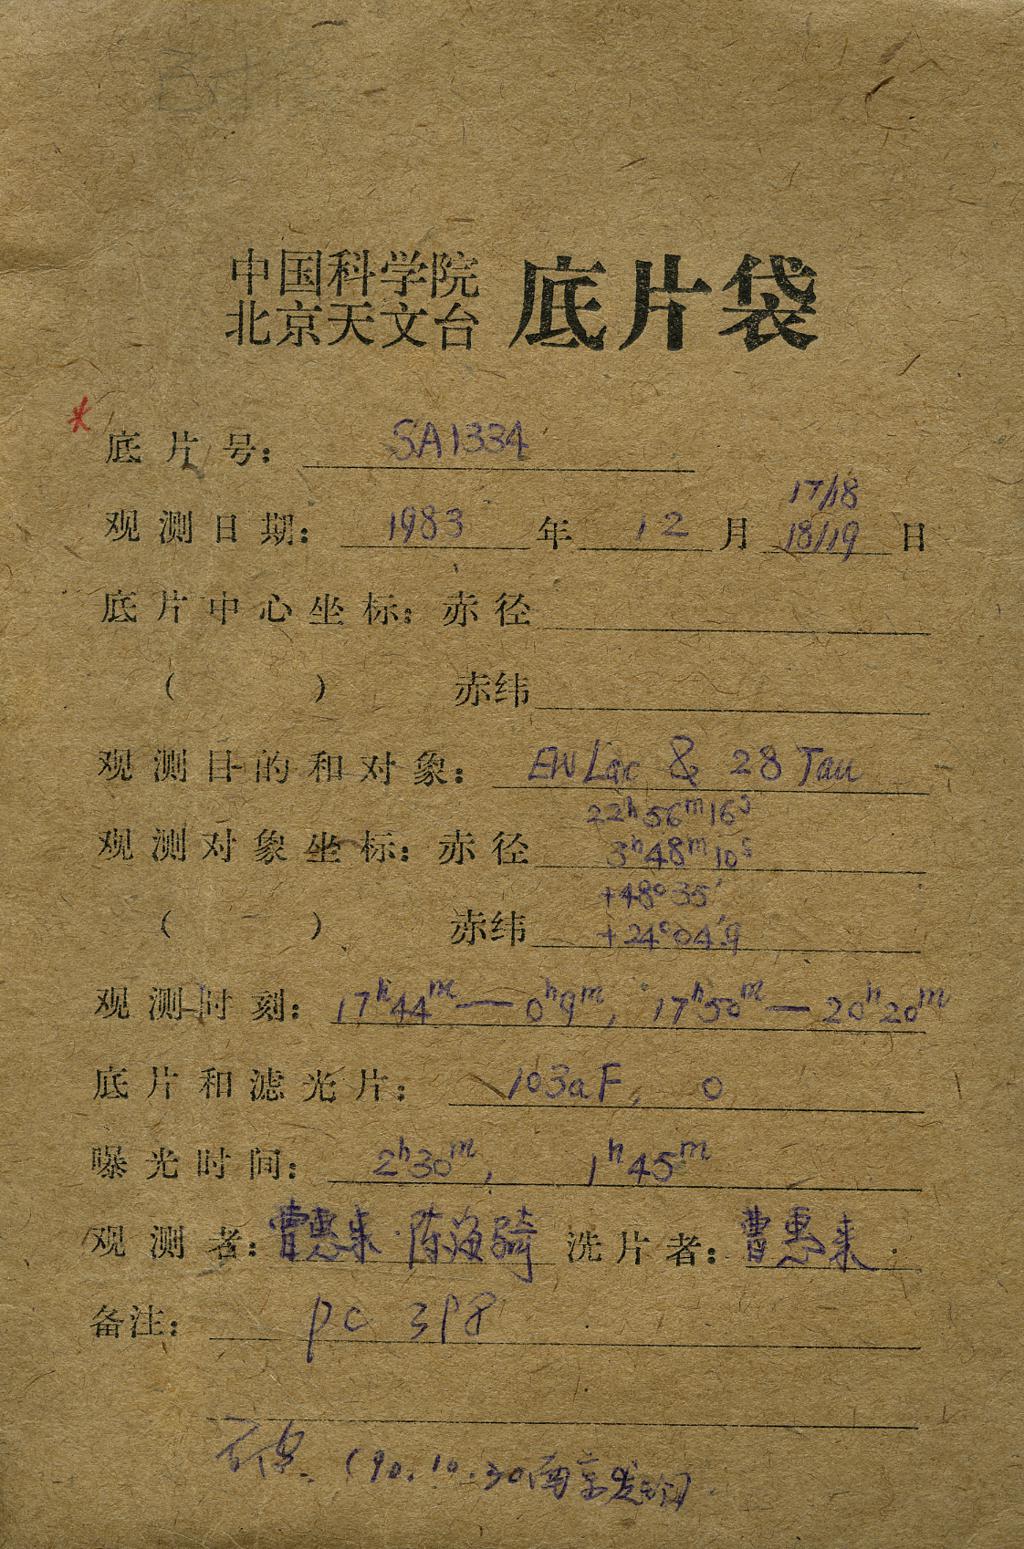 中国科学院
北京天文台 底片袋
底片号: SA1334
17/18
观测日期: 1983年12月18/19日
底片中心坐标: 赤径
( ) 赤纬
观测目的和对象: EW Lac & 28 Tau
22h56m16s
观测对象坐标: 赤径 3h48m10s
+48°35′
( ) 赤纬 +24°04′.9
观测时刻: 17h44m—0h9m, 17h50m—20h20m
底片和滤光片: 103aF, 0
曝光时间: 2h30m, 1h45m
观测者: 曹惠来·陈海骑 洗片者: 曹惠来
备注: pc 3p8
(90.10.30南京发